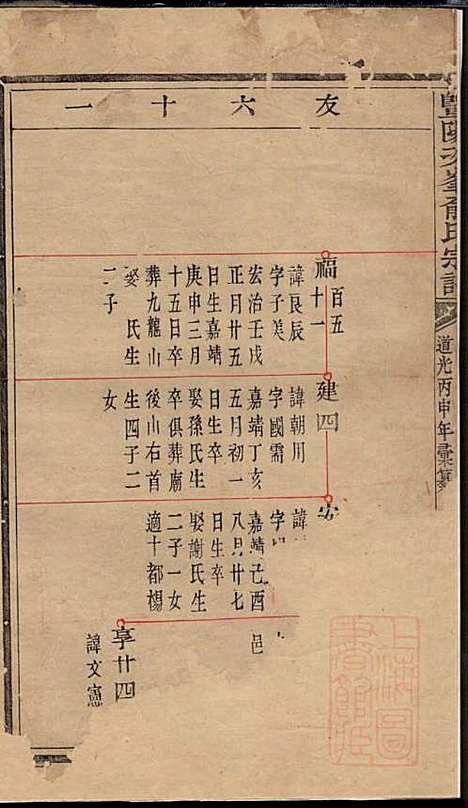 暨陽次峯俞氏宗譜
道光丙申年彙纂
友六十一
福百五十一
諱良辰
字子美
宏治壬戌
正月廿五
日生嘉靖
庚申三月
十五日卒
葬九龍山
娶 氏生
二子
建四
諱朝川
字國需
嘉靖丁亥
五月初一
日生卒
娶孫氏生
卒俱葬廟
後山右首
生四子二
女
安
諱
字
嘉靖己酉
八月廿七
日生卒
娶謝氏生
二子一女
適十都楊
邑
享廿四
諱文憲
上海圖書館藏